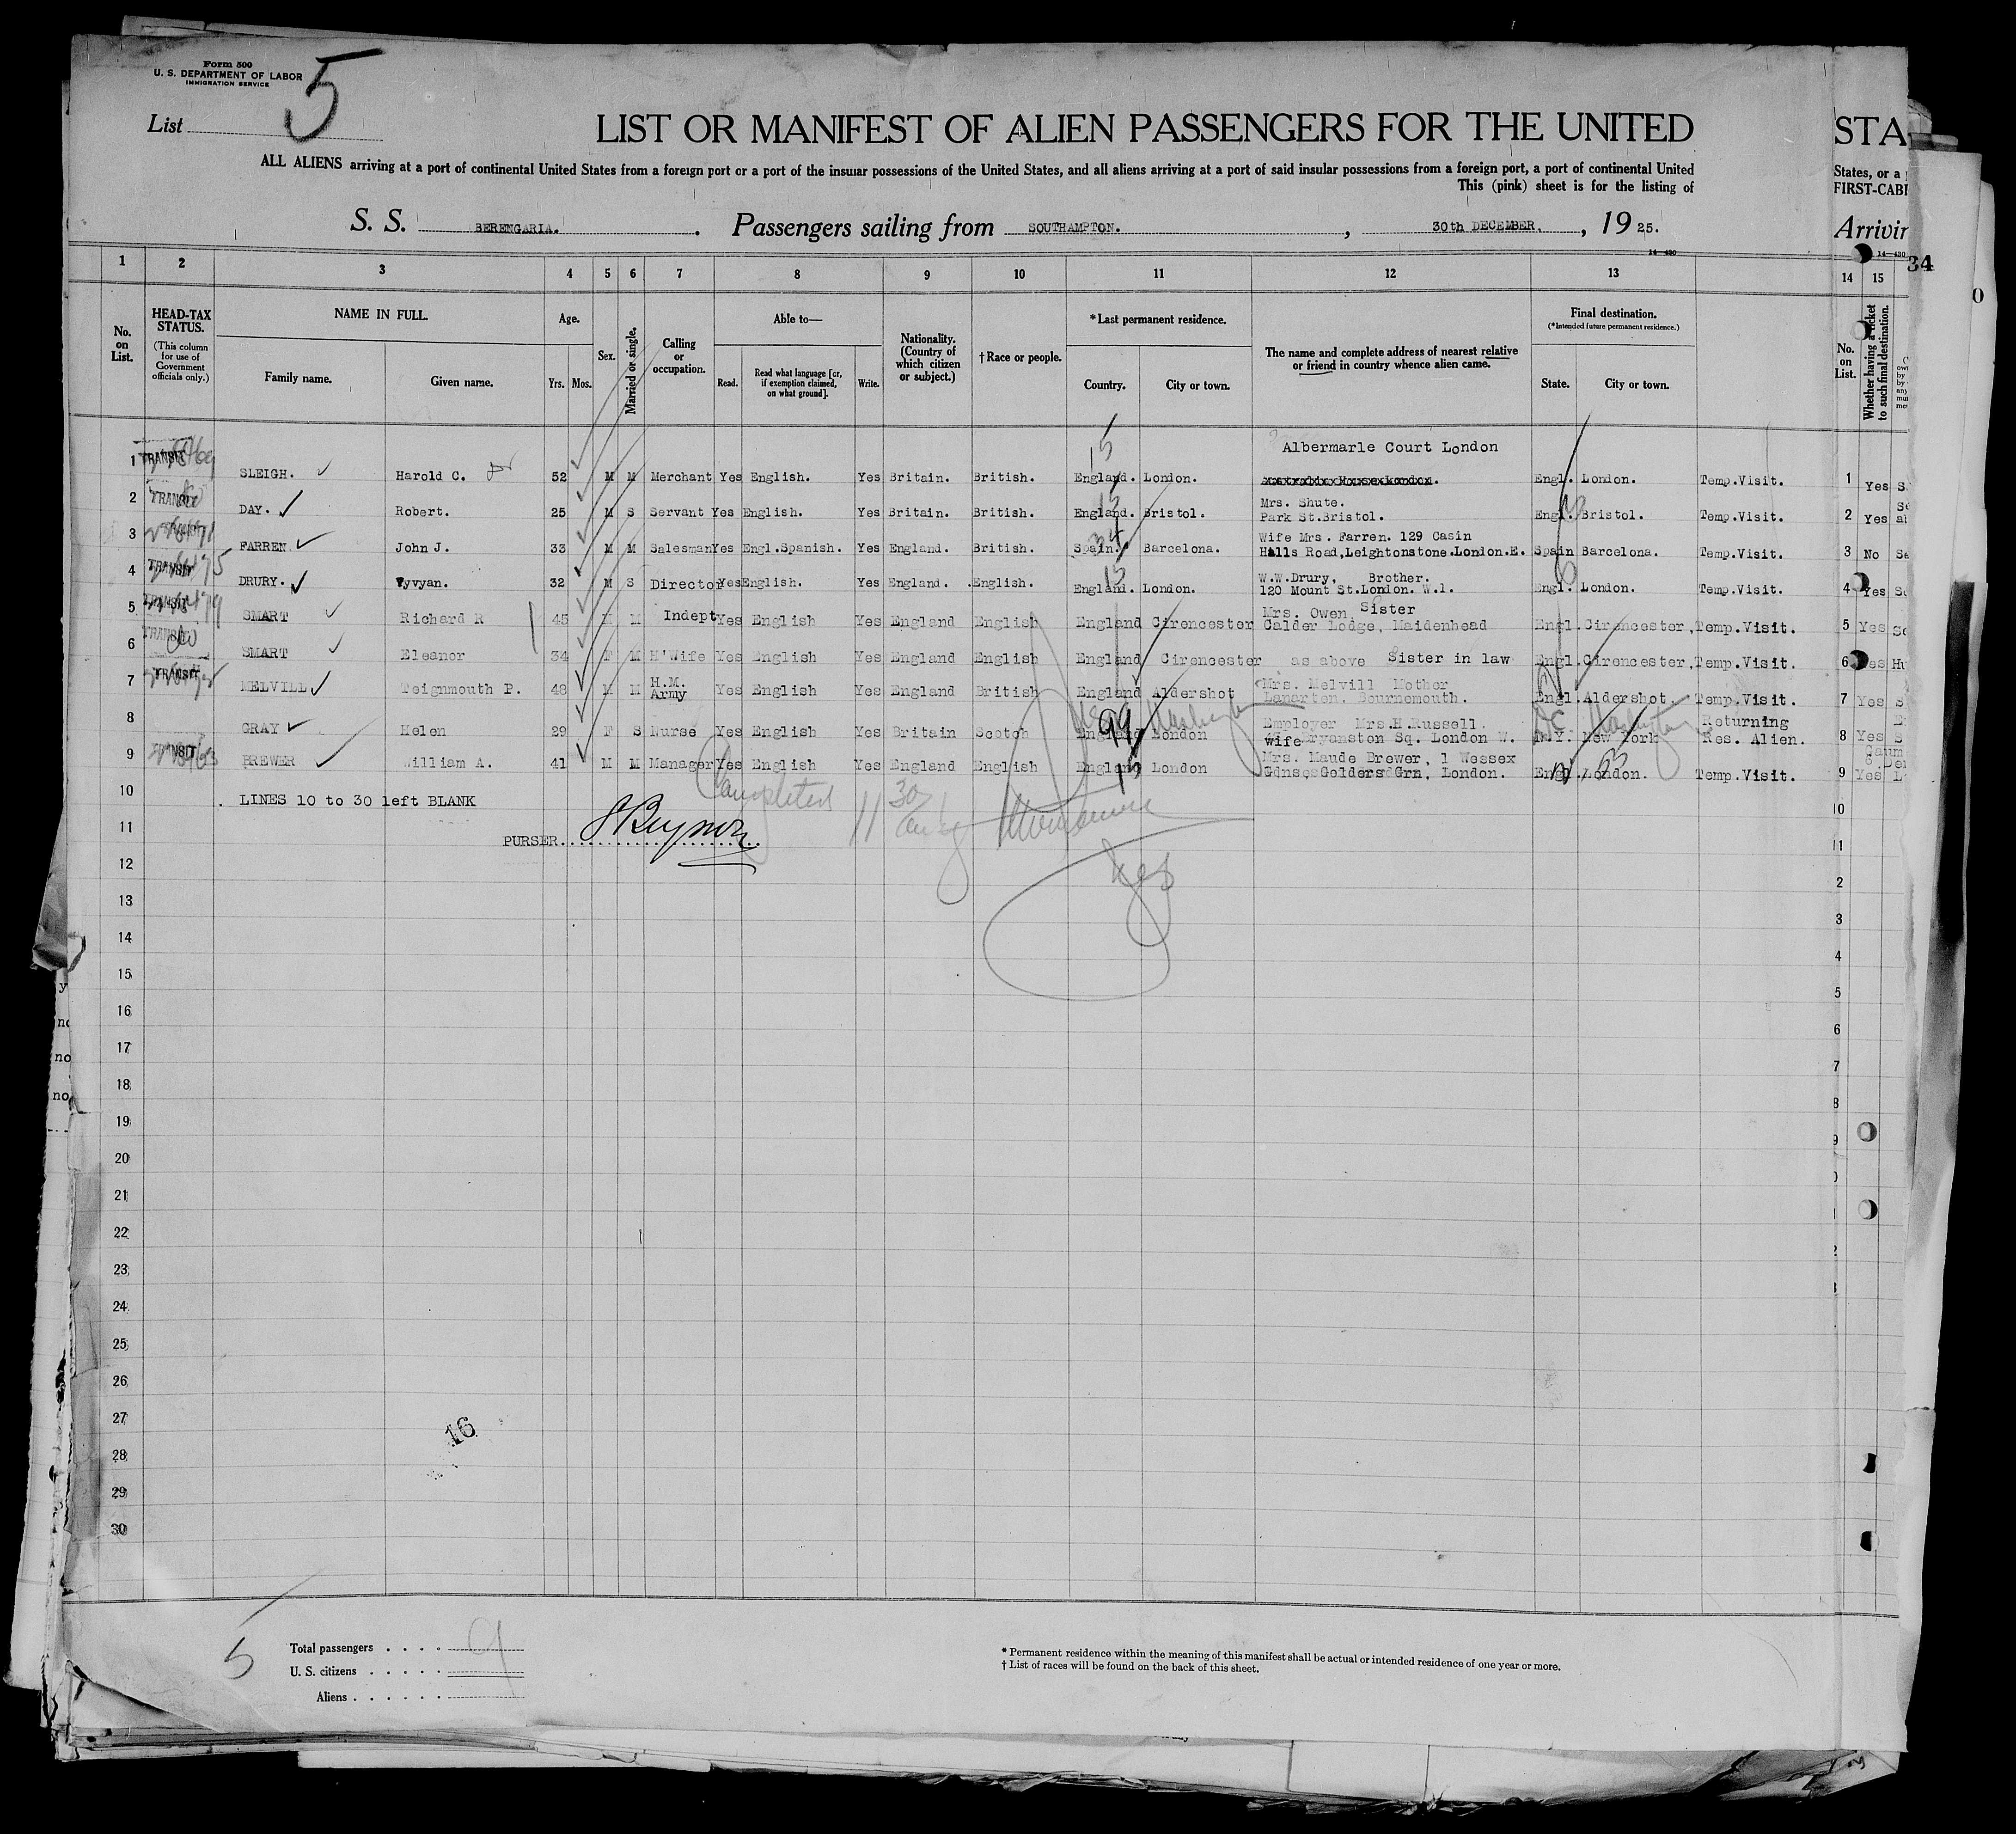 Form 500
U. S. DEPARTMENT OF LABOR
IMMIGRATION SERVICE
List 5
LIST OR MANIFEST OF ALIEN PASSENGERS FOR THE UNITED STA
ALL ALIENS arriving at a port of continental United States from a foreign port or a port of the insular possessions of the United States, and all aliens arriving at a port of said insular possessions from a foreign port, a port of continental United States, or a
This (pink) sheet is for the listing of FIRST-CABI
S. S. BERENGARIA. Passengers sailing from SOUTHAMPTON. , 30th DECEMBER. , 19 25. Arrivin
14-430 14-430 34
1 2 3 4 5 6 7 8 9 10 11 12 13 14 15
No. on List.
HEAD-TAX STATUS.
(This column for use of Government officials only.)
NAME IN FULL.
Family name. Given name.
Age.
Yrs. Mos.
Sex.
Married or single.
Calling or occupation.
Able to—
Read. Read what language [or, if exemption claimed, on what ground]. Write.
Nationality. (Country of which citizen or subject.)
†Race or people.
*Last permanent residence.
Country. City or town.
The name and complete address of nearest relative or friend in country whence alien came.
Final destination.
(*Intended future permanent residence.)
State. City or town.
No. on List.
Whether having a ticket to such final destination.
Albermarle Court London
1 TRANSIT SLEIGH. Harold C. 52 M M Merchant Yes English. Yes Britain. British. England. London. Engl. London. Temp.Visit. 1 Yes
2 TRANSIT DAY. Robert. 25 M S Servant Yes English. Yes Britain. British. England. Bristol. Mrs. Shute. Park St.Bristol. Engl. Bristol. Temp.Visit. 2 Yes
3 FARREN John J. 33 M M Salesman Yes Engl.Spanish. Yes England. British. Spain. Barcelona. Wife Mrs. Farren. 129 Casin Halls Road,Leightonstone.London.E. Spain Barcelona. Temp.Visit. 3 No
4 TRANSIT DRURY. Vyvyan. 32 M S Director Yes English. Yes England. English. England. London. W.W.Drury, Brother. 120 Mount St.London. W.1. Engl. London. Temp.Visit. 4 Yes
5 TRANSIT SMART Richard R 45 M M Indept Yes English Yes England English England Cirencester Mrs. Owen, Sister Calder Lodge, Maidenhead Engl. Cirencester, Temp.Visit. 5 Yes
6 TRANSIT SMART Eleanor 34 F M H'Wife Yes English Yes England English England Cirencester as above Sister in law Engl. Cirencester, Temp.Visit. 6 Yes Hu
7 TRANSIT MELVILL Teignmouth P. 48 M M H.M. Army Yes English Yes England British England Aldershot Mrs. Melvill Mother Bournemouth. Engl. Aldershot. Temp.Visit. 7 Yes
8 GRAY Helen 29 F S Nurse Yes English Yes Britain Scotch England London Employer Mrs.H.Russell. Bryanston Sq. London W. N.Y. New York Returning Res. Alien. 8 Yes
99 Washington DC Washington
9 TRANSIT BREWER William A. 41 M M Manager Yes English Yes England English England London wife Mrs. Maude Brewer, 1 Wessex Gdns, Golders Grn, London. Engl. London. Temp.Visit. 9 Yes
10 LINES 10 to 30 left BLANK 10
Completed
11 PURSER 11
12 2
13 3
14 4
15 5
16 6
17 7
18 8
19 9
20
21
22
23
24
25
26
27
28
29
30
16
5
Total passengers 9
U. S. citizens
Aliens
* Permanent residence within the meaning of this manifest shall be actual or intended residence of one year or more.
† List of races will be found on the back of this sheet.